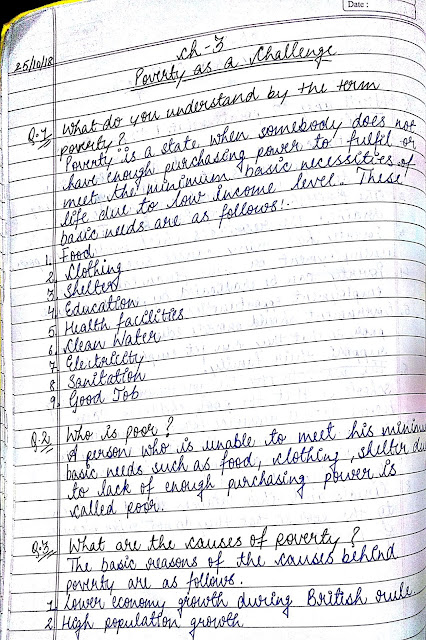 Date :
25/10/18
Ch-3
Poverty as a Challenge
Q.1 What do you understand by the term
poverty?
Poverty is a state when somebody does not
have enough purchasing power to fulfil or
meet the minimum basic necessities of
life due to low income level. These
basic needs are as follows:
1. Food
2. Clothing
3. Shelter
4. Education
5. Health facilities
6. Clean Water
7. Electricity
8. Sanitation
9. Good Job
Q.2 Who is poor?
A person who is unable to meet his minimu
basic needs such as food, clothing, shelter du
to lack of enough purchasing power is
called poor.
Q.3 What are the causes of poverty?
The basic reasons of the causes behind
poverty are as follows.
1. Lower economy growth during British rule.
2. High population growth